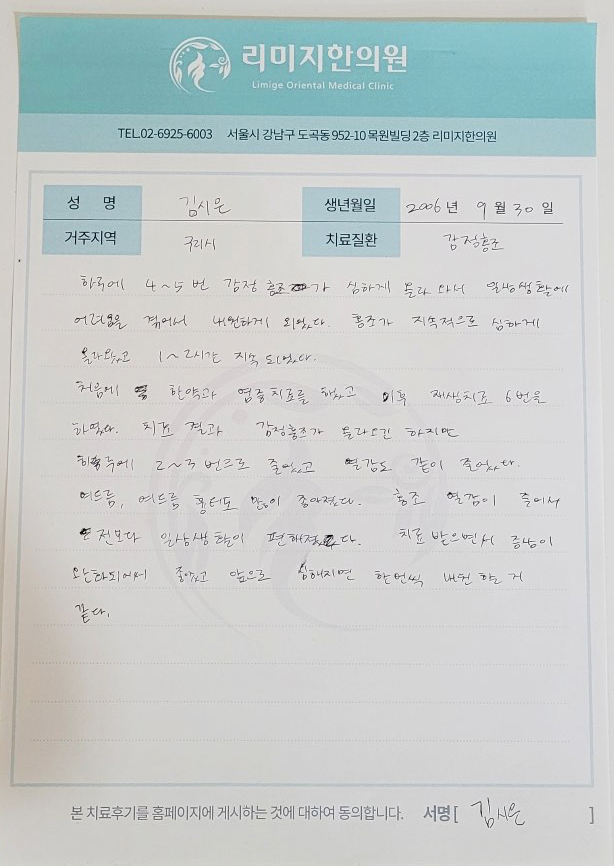 리미지한의원
Limige Oriental Medical Clinic
TEL.02-6925-6003 서울시 강남구 도곡동 952-10 목원빌딩 2층 리미지한의원
성 명 김시은 생년월일 2006년 9월 30일
거주지역 구리시 치료질환 감정홍조
하루에 4~5번 감정 홍조가 심하게 올라 와서 일상생활에
어려움을 겪어서 내원하게 되었다. 홍조가 지속적으로 심하게
올라왔고 1~2시간 지속 되었다.
처음에 한약과 염증치료를 했고 이후 재생치료 6번을
하였다. 치료 결과 감정홍조가 올라오긴 하지만
하루에 2~3번으로 줄었고 열감도 같이 줄었다.
여드름, 여드름 흉터도 많이 좋아졌다. 홍조 열감이 줄어서
전보다 일상생활이 편해졌다. 치료 받으면서 증상이
완화되어서 좋았고 앞으로 심해지면 한번씩 내원 할 거
같다.
본 치료후기를 홈페이지에 게시하는 것에 대하여 동의합니다. 서명 [ 김시은 ]